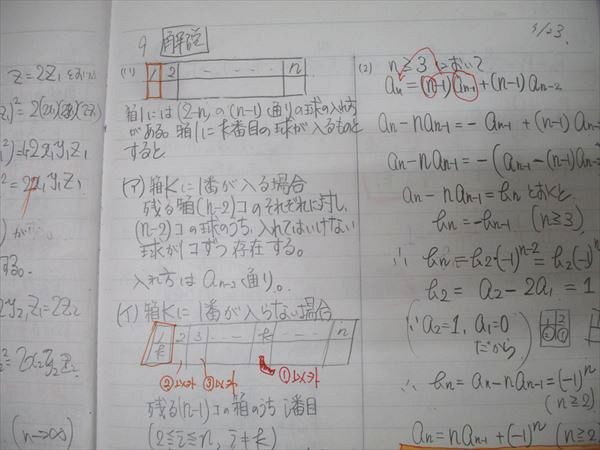 Z=2Z₁
9 解説
5/23.
(1)
1 2 - - - - - n
箱1には(2~n)の(n-1)通りの球の入れ方
がある。箱1にk番目の球が入るものと
すると
(ア) 箱Kに1番が入る場合
残る箱(n-2)コのそれぞれに対し、
(n-2)コの球のうち、入れてはいけない
球が1コずつ存在する。
入れ方は aₙ₋₂通り。
(イ) 箱Kに1番が入らない場合
1 2 3 - - - k - - - n
k
②以外 ③以外 ①以外
残る(n-1)コの箱のうち i番目
(2≦i≦n, i≠k)
(2) n≧3 において
aₙ=(n-1)aₙ₋₁+(n-1)aₙ₋₂
aₙ-naₙ₋₁=-aₙ₋₁+(n-1)aₙ
aₙ-naₙ₋₁=-(aₙ₋₁-(n-1)aₙ₋₂
aₙ-naₙ₋₁=bₙとおくと
bₙ=-bₙ₋₁ (n≧3)
∴ bₙ=b₂・(-1)ⁿ⁻²=b₂(-1)
b₂=a₂-2a₁=1
(∵a₂=1, a₁=0
だから)
∴ bₙ=aₙ-naₙ₋₁=(-1)ⁿ
(n≧2)
aₙ=naₙ₋₁+(-1)ⁿ (n≧2)
する。
(n→∞)